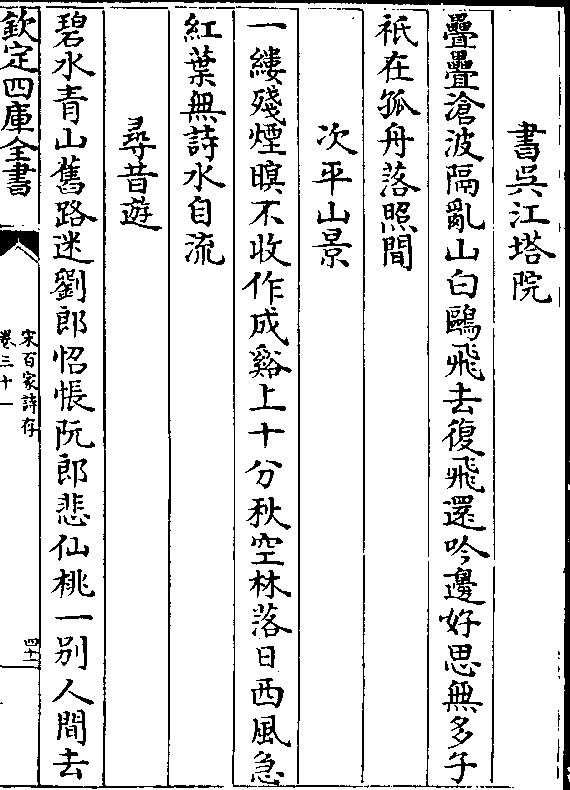 書吳江塔院
疊疊滄波隔亂山白鷗飛去復飛還吟邊好思無多子
祇在孤舟落照間
次平山景
一縷殘煙暝不收作成谿上十分秋空林落日西風急
紅葉無詩水自流
尋昔遊
碧水青山舊路迷劉郎怊悵阮郎悲仙桃一别人間去
欽定四庫全書
宋百家詩存
卷三十一